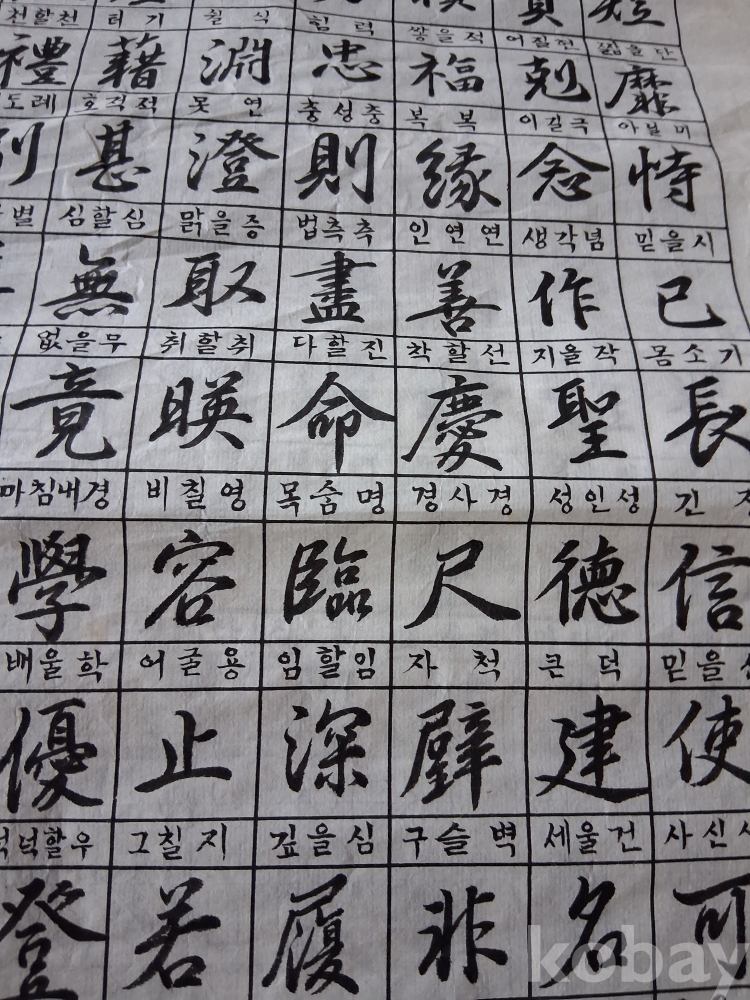 천할천 터 기 칠 식 힘 력 쌓을적 어질현 짧을단
禮 藉 淵 忠 福 剋 靡
도례 호적적 못 연 충성충 복 복 이길극 아닐미
別 甚 澄 則 緣 念 恃
별 심할심 맑을증 법측측 인연연 생각념 믿을시
無 取 盡 善 作 己
없을무 취할취 다할진 착할선 지을작 몸소기
竟 暎 命 慶 聖 長
마침내경 비칠영 목숨명 경사경 성인성 긴
學 容 臨 尺 德 信
배울학 어굴용 임할임 자 척 큰 덕 믿을
優 止 深 璧 建 使
덕할우 그칠지 깊을심 구슬벽 세울건 사신
登 若 履 非 名 可
kobay